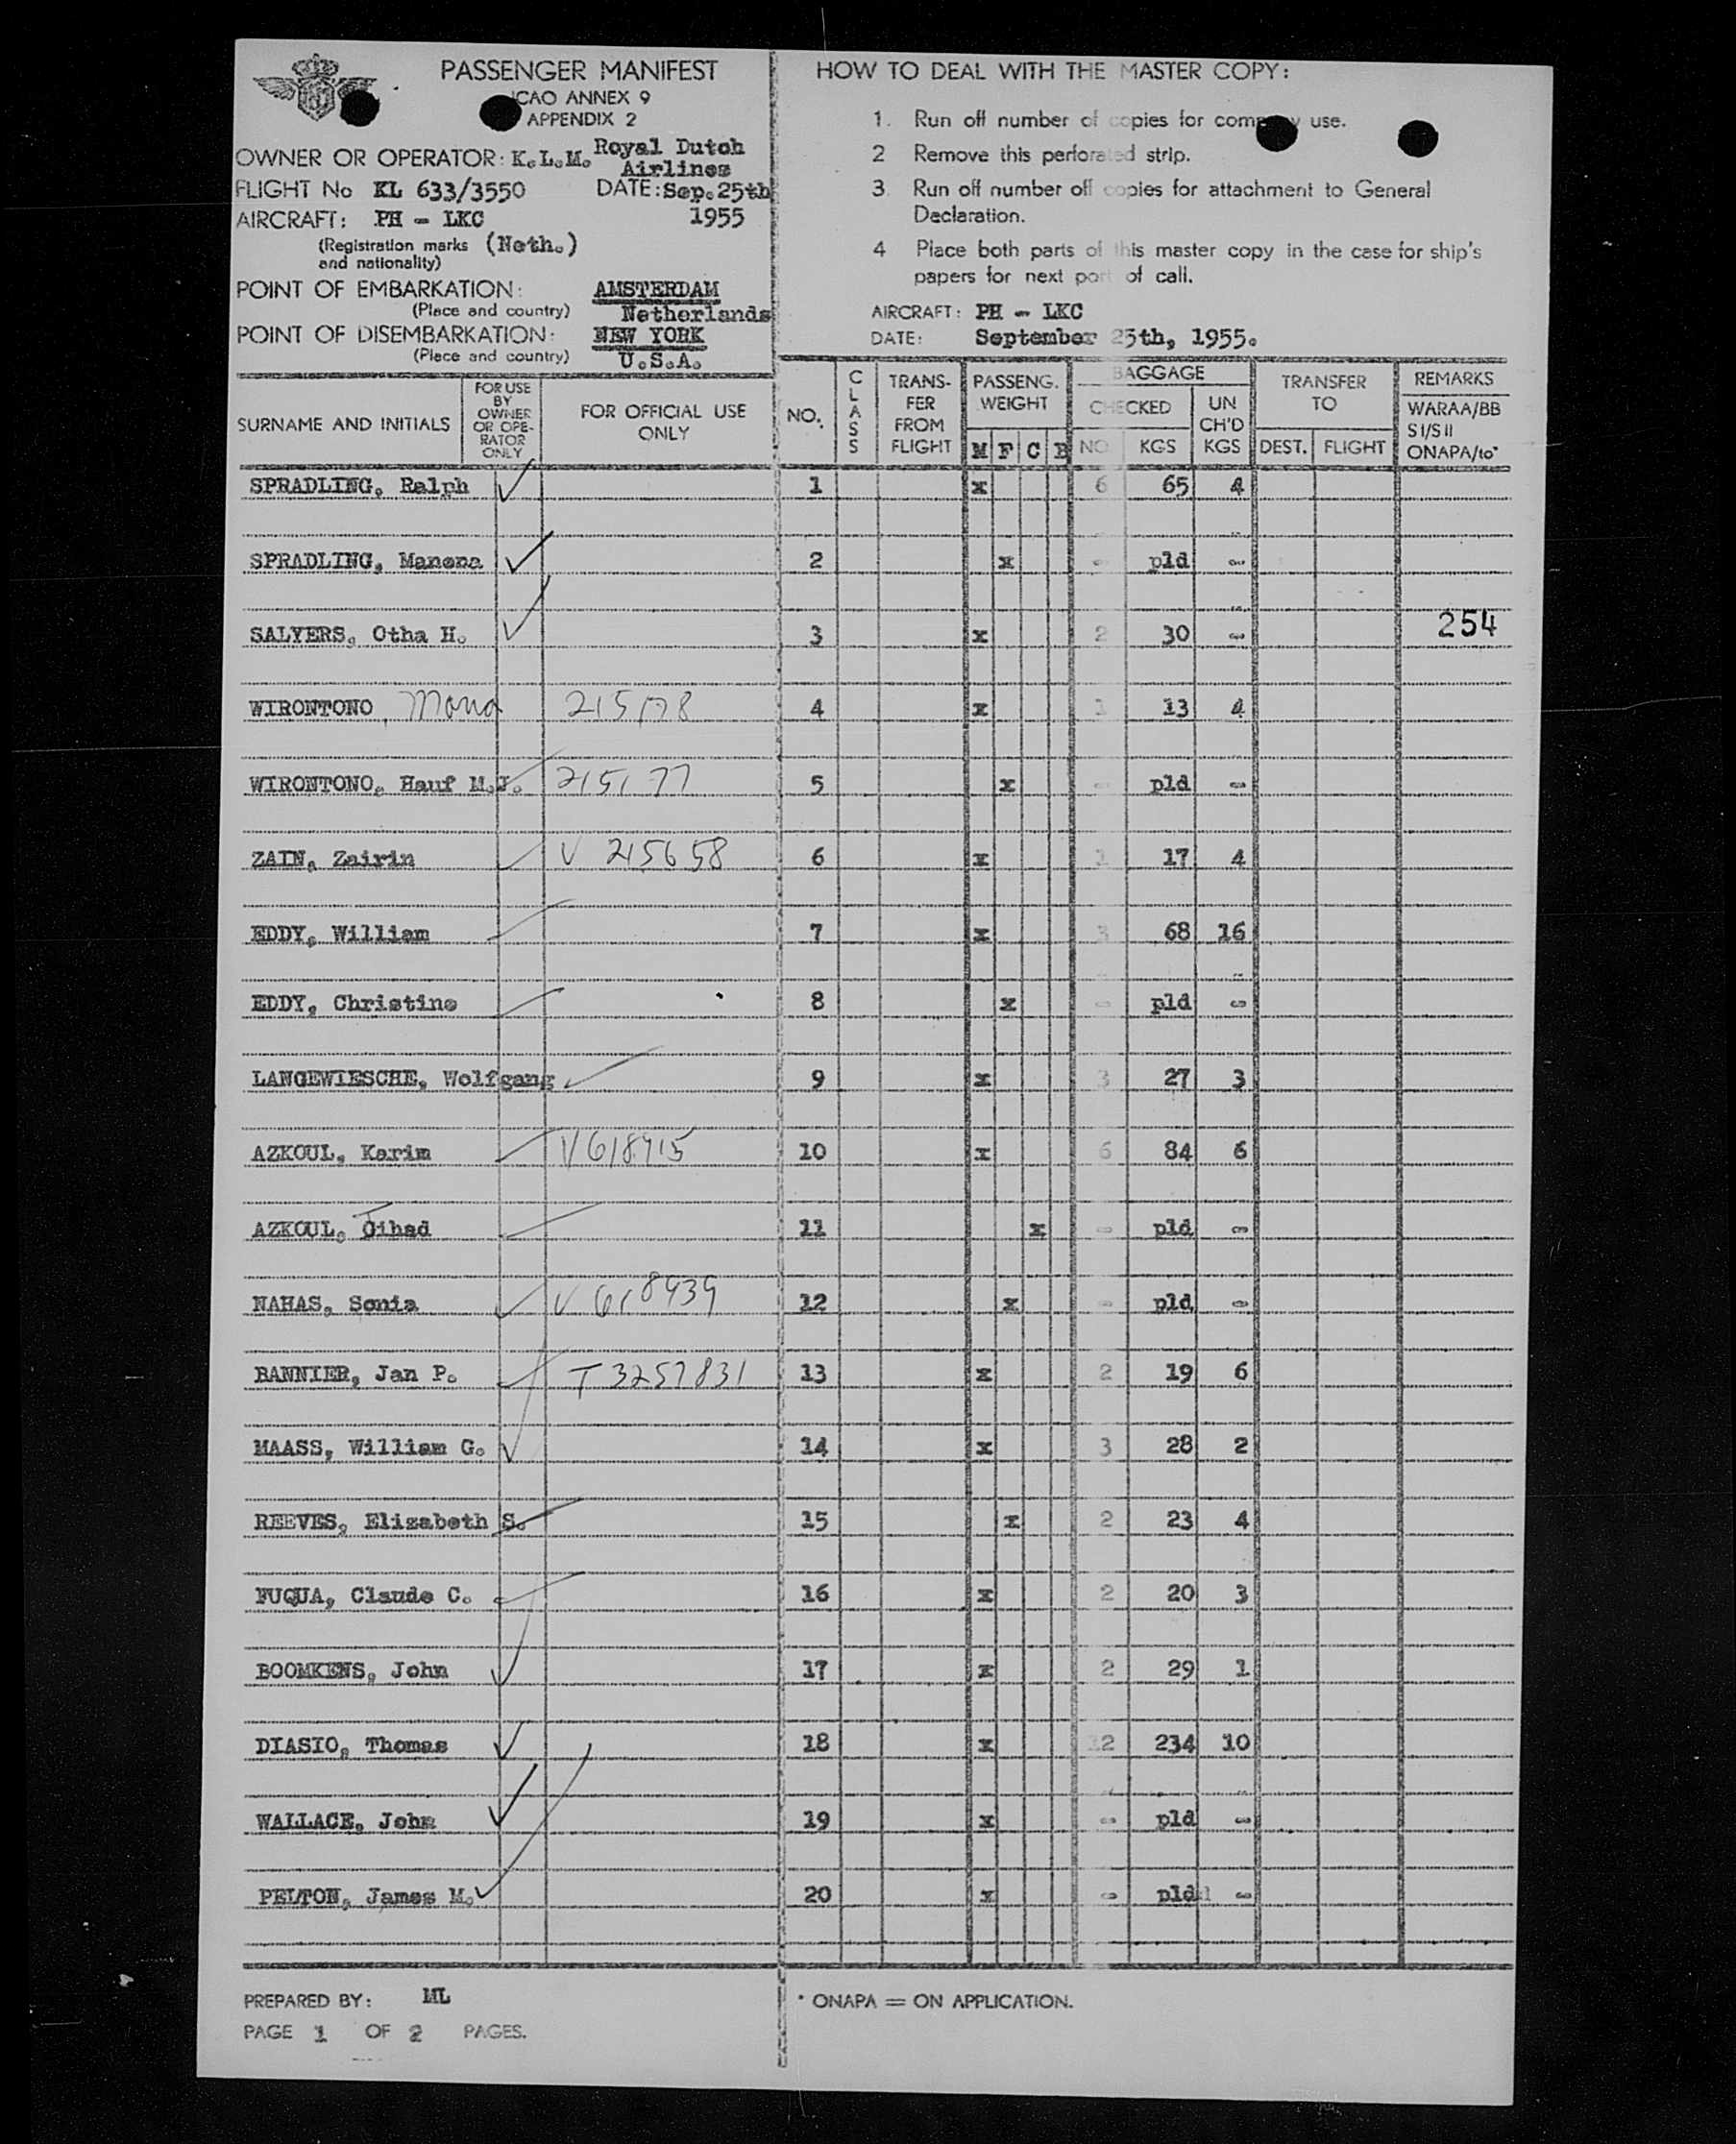 PASSENGER MANIFEST
ICAO ANNEX 9
APPENDIX 2
OWNER OR OPERATOR: K.L.M. Royal Dutch Airlines
FLIGHT No KL 633/3550 DATE: Sep. 25th 1955
AIRCRAFT: PH - LKC
(Registration marks and nationality) (Neth.)
POINT OF EMBARKATION: AMSTERDAM
(Place and country) Netherlands
POINT OF DISEMBARKATION: NEW YORK
(Place and country) U.S.A.
HOW TO DEAL WITH THE MASTER COPY:
1. Run off number of copies for company use.
2 Remove this perforated strip.
3. Run off number off copies for attachment to General
Declaration.
4 Place both parts of this master copy in the case for ship's
papers for next port of call.
AIRCRAFT: PH - LKC
DATE: September 25th, 1955.
SURNAME AND INITIALS FOR USE BY OWNER OR OPE-RATOR ONLY FOR OFFICIAL USE ONLY NO. CLASS TRANS-FER FROM FLIGHT PASSENG. WEIGHT M F C B BAGGAGE CHECKED NO KGS UN CH'D KGS TRANSFER TO DEST. FLIGHT REMARKS WARAA/BB S I/S II ONAPA/to*
SPRADLING, Ralph 1 x 6 65 4
SPRADLING, Manona 2 x - pld -
SALYERS, Otha H. 3 x 2 30 - 254
WIRONTONO, Mona 215178 4 x 1 13 4
WIRONTONO, Hauf M.J. 215177 5 x - pld -
ZAIN, Zairin V 215658 6 x 1 17 4
EDDY, William 7 x 3 68 16
EDDY, Christine 8 x - pld -
LANGEWIESCHE, Wolfgang 9 x 3 27 3
AZKOUL, Karim V 618915 10 x 6 84 6
AZKOUL, Gihad 11 x - pld -
NAHAS, Sonia V 618939 12 x - pld -
BANNIER, Jan P. T 3257831 13 x 2 19 6
MAASS, William G. 14 x 3 28 2
REEVES, Elizabeth S. 15 x 2 23 4
FUQUA, Claude C. 16 x 2 20 3
BOOMKENS, John 17 x 2 29 1
DIASIO, Thomas 18 x 12 234 10
WALLACE, John 19 x - pld -
PELTON, James M. 20 x - pld -
PREPARED BY: ML
PAGE 1 OF 2 PAGES.
* ONAPA = ON APPLICATION.